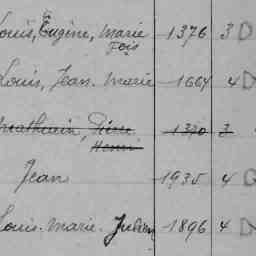 Louis, Eugène, Marie 1376 3 D
Fois
Louis, Jean. Marie 1664 4 D
Mathurin, Pierre 1320 3
Henri
Jean 1935 4
Louis. Marie. Julien 1896 4 D